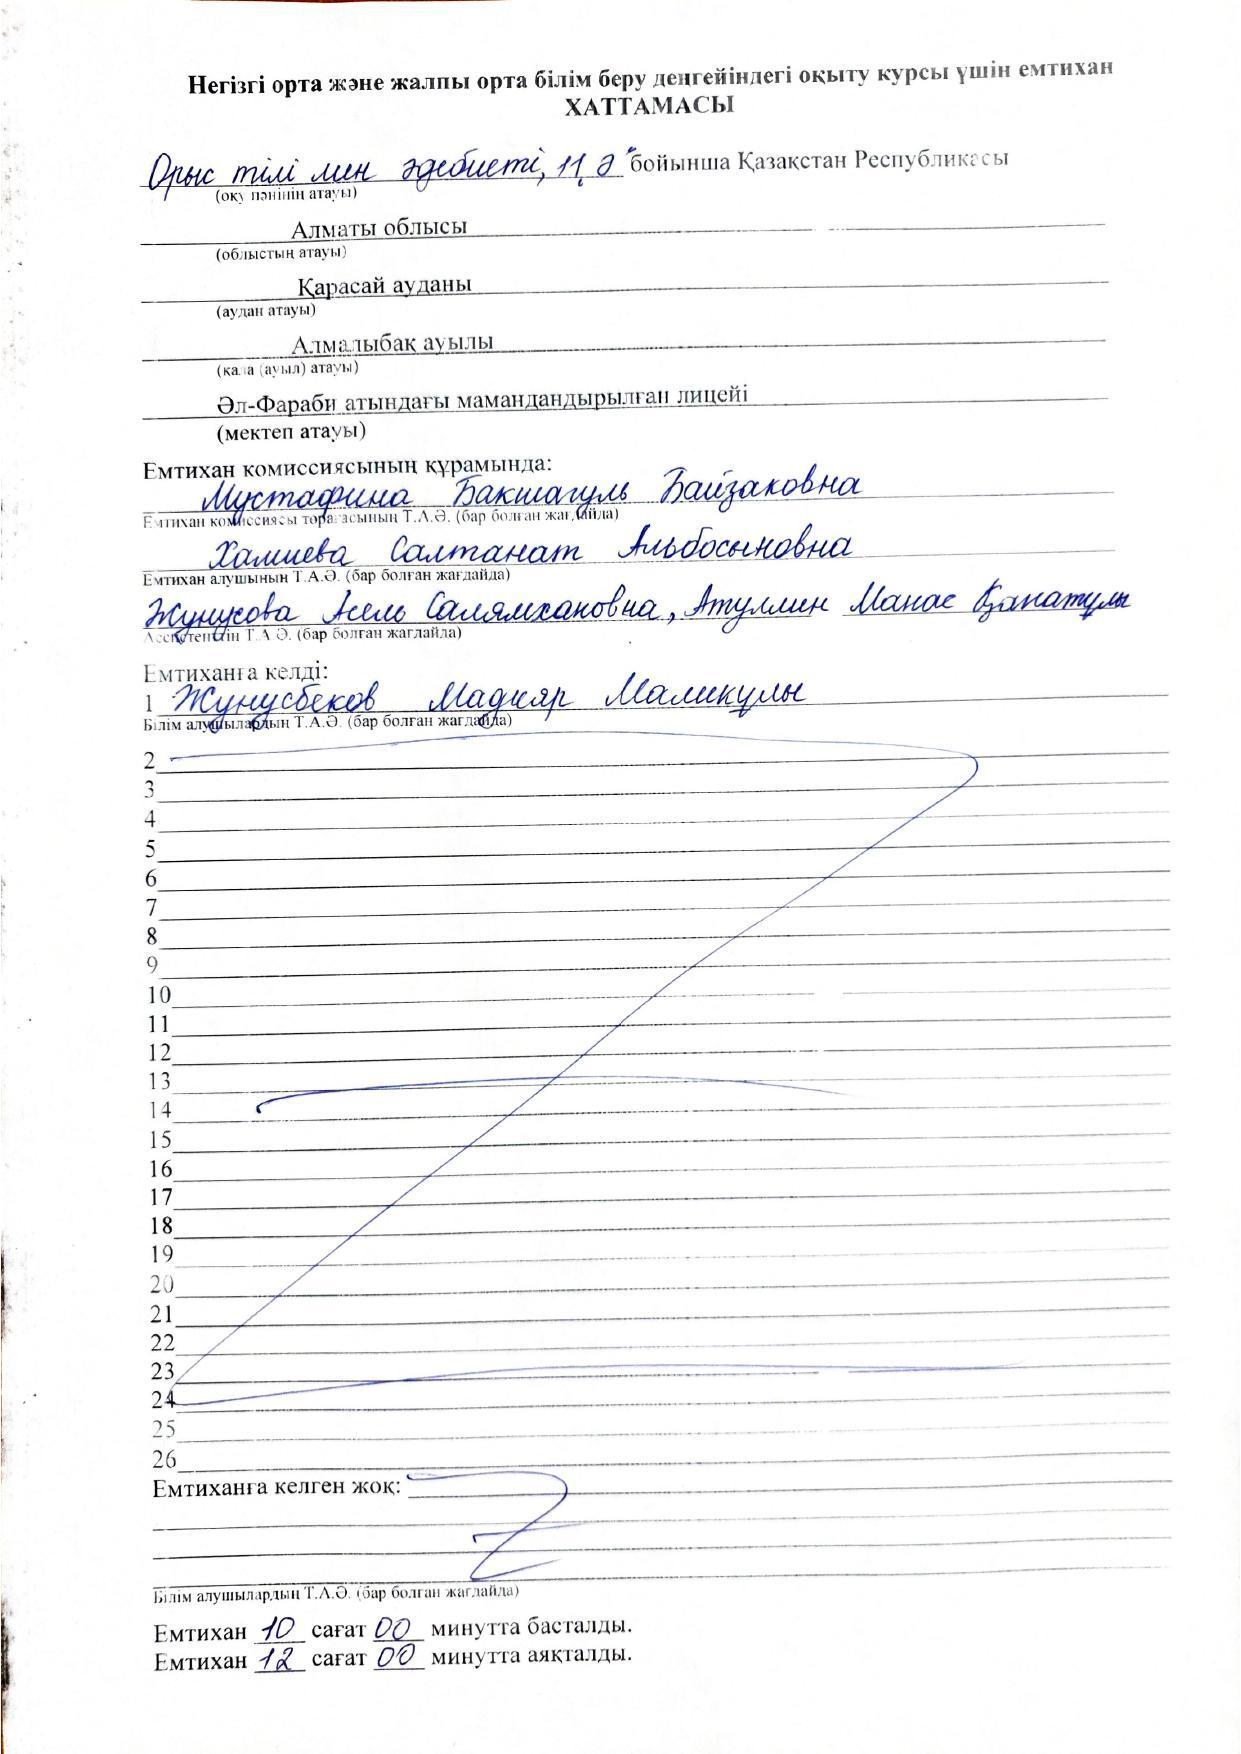 Негізгі орта және жалпы орта білім беру деңгейіндегі оқыту курсы үшін емтихан
ХАТТАМАСЫ
Орыс тілі мен әдебиеті, 11 "Ә" бойынша Қазақстан Республикасы
(оқу пәнінің атауы)
Алматы облысы
(облыстың атауы)
Қарасай ауданы
(аудан атауы)
Алмалыбақ ауылы
(қала (ауыл) атауы)
Әл-Фараби атындағы мамандандырылған лицейі
(мектеп атауы)
Емтихан комиссиясының құрамында:
Мустафина Бакшагуль Байзаковна
Емтихан комиссиясы торағасының Т.А.Ә. (бар болған жағдайда)
Хамиева Салтанат Альбосыновна
Емтихан алушының Т.А.Ә. (бар болған жағдайда)
Жунусова Асель Салямхановна, Атуллин Манас Қанатұлы
Ассистенттің Т.А.Ә. (бар болған жағдайда)
Емтиханға келді:
1 Жунусбеков Мадияр Маликұлы
Білім алушылардың Т.А.Ә. (бар болған жағдайда)
2
3
4
5
6
7
8
9
10
11
12
13
14
15
16
17
18
19
20
21
22
23
24
25
26
Емтиханға келген жоқ:
Білім алушылардың Т.А.Ә. (бар болған жағдайда)
Емтихан 10 сағат 00 минутта басталды.
Емтихан 12 сағат 00 минутта аяқталды.